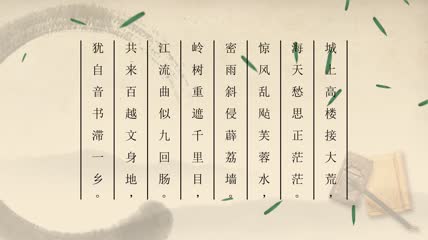 城上高楼接大荒，
海天愁思正茫茫。
惊风乱飐芙蓉水，
密雨斜侵薜荔墙。
岭树重遮千里目，
江流曲似九回肠。
共来百越文身地，
犹自音书滞一乡。